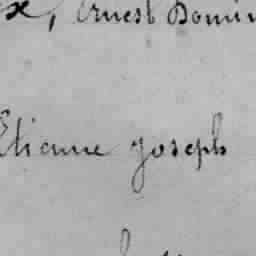 x, Ernest Domin
Etienne Joseph